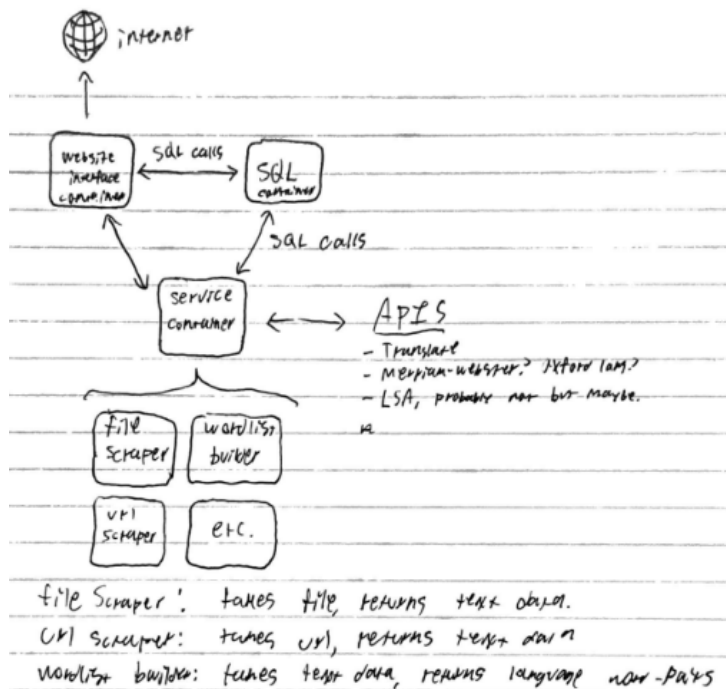 internet
website
interface
container
SQL calls
SQL
container
SQL calls
service
container
APIS
- Translate
- Merriam-webster? Oxford lang?
- LSA, probably not but maybe.
file
scraper
wordlist
builder
url
scraper
etc.
file Scraper: takes file, returns text data.
url scraper: takes url, returns text data
wordlist builder: takes text data, returns language -pairs